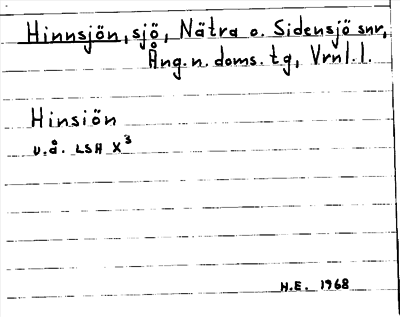 Hinnsjön, sjö, Nätra o. Sidensjö snr,
Ång.n. doms. t.g, Vrnl. l.
Hinsiön
u.å. LSA X³
H.E. 1968